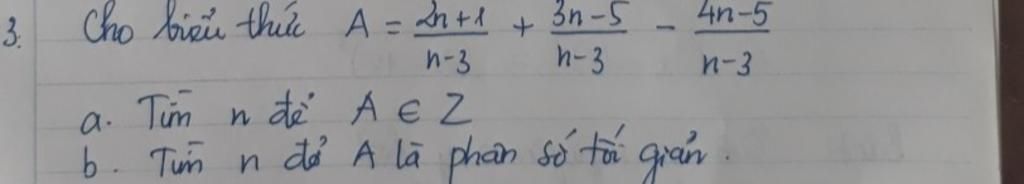 3. Cho biểu thức A = \frac{2n+1}{n-3} + \frac{3n-5}{n-3} - \frac{4n-5}{n-3}
a. Tìm n để A ∈ Z
b. Tìm n để A là phân số tối giản.